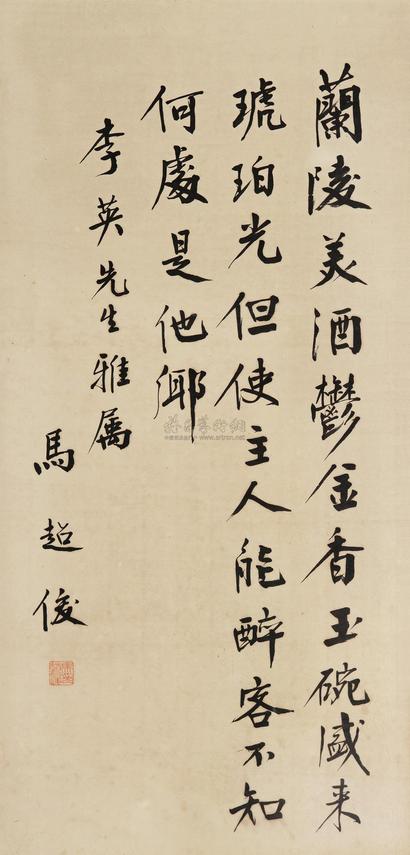 蘭陵美酒鬱金香玉碗盛来
琥珀光但使主人能醉客不知
何處是他鄉
李英先生雅属
馬超俊